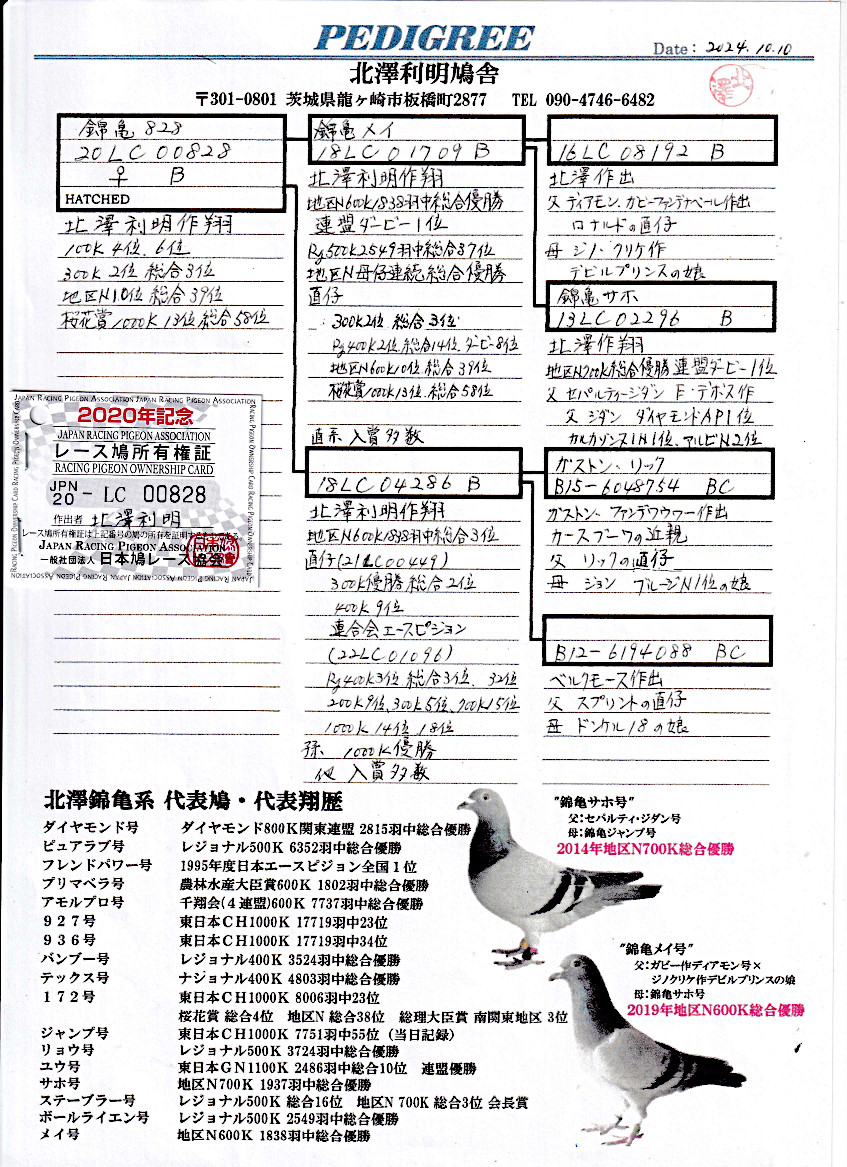 PEDIGREE
Date: 2024.10.10
北澤利明鳩舎
〒301-0801 茨城県龍ヶ崎市板橋町2877 TEL 090-4746-6482
北澤
錦亀 828
20LC00828
♀ B
HATCHED
北澤利明作翔
100K 4位、6位
300K 2位 総合3位
地区N10位 総合39位
桜花賞1000K 13位 総合58位
錦亀メイ
18LC01709 B
北澤利明作翔
地区N600K1838羽中総合優勝
連盟ダービー1位
Rg500K2549羽中総合37位
地区N母仔連続総合優勝
直仔
300K2位 総合3位
Rg400K2位、総合14位 ダービー8位
地区N600K10位、総合39位
桜花賞1000K13位、総合58位
直系 入賞多数
18LC04286 B
北澤利明作翔
地区N600K1838羽中総合3位
直仔(21LC00449)
300K優勝 総合2位
400K 9位
連合会エースピジョン
(22LC01096)
Rg400K3位 総合3位、32位
200K9位、300K5位、700K15位
1000K 14位、18位
孫 1000K優勝
他 入賞多数
16LC08192 B
北澤作出
父 ディアモン、ガビーファンデナベール作出
ロナルドの直仔
母 ジノ・クリケ作
デビルプリンスの娘
錦亀サホ
13LC02296 B
北澤作翔
地区N700K総合優勝 連盟ダービー1位
父 セパルティージダン E・デボス作
父 ジダン ダイヤモンドAP1位
カルカソンヌIN1位、アルビN2位
ガストン、リック
B15-6048754 BC
ガストン、ファンデワウワー作出
カースブーワの近親
父 リックの直仔
母 ジョン ブルージN1位の娘
B12-6194088 BC
ベルクモース作出
父 スプリントの直仔
母 ドンケル18の娘
JAPAN RACING PIGEON ASSOCIATION JAPAN RACING PIGEON ASSOCIATION
2020年記念
JAPAN RACING PIGEON ASSOCIATION
レース鳩所有権証
RACING PIGEON OWNERSHIP CARD
JPN 20 - LC 00828
作出者 北澤利明
レース鳩所有権証は上記番号の鳩の所有を証明する
JAPAN RACING PIGEON ASSOCIATION
一般社団法人 日本鳩レース協会
北澤錦亀系 代表鳩・代表翔歴
ダイヤモンド号 ダイヤモンド800K関東連盟 2815羽中総合優勝
ピュアラブ号 レジョナル500K 6352羽中総合優勝
フレンドパワー号 1995年度日本エースピジョン全国1位
プリマベラ号 農林水産大臣賞600K 1802羽中総合優勝
アモルプロ号 千翔会(4連盟)600K 7737羽中総合優勝
927号 東日本CH1000K 17719羽中23位
936号 東日本CH1000K 17719羽中34位
バンブー号 レジョナル400K 3524羽中総合優勝
テックス号 ナジョナル400K 4803羽中総合優勝
172号 東日本CH1000K 8006羽中23位
桜花賞 総合4位 地区N 総合38位 総理大臣賞 南関東地区 3位
ジャンプ号 東日本CH1000K 7751羽中55位 (当日記録)
リョウ号 レジョナル500K 3724羽中総合優勝
ユウ号 東日本GN1100K 2486羽中総合10位 連盟優勝
サホ号 地区N700K 1937羽中総合優勝
ステーブラー号 レジョナル500K 総合16位 地区N 700K 総合3位 会長賞
ボールライエン号 レジョナル500K 2549羽中総合優勝
メイ号 地区N600K 1838羽中総合優勝
"錦亀サホ号"
父:セパルティ・ジダン号
母:錦亀ジャンプ号
2014年地区N700K総合優勝
"錦亀メイ号"
父:ガビー作ディアモン号×
ジノクリケ作デビルプリンスの娘
母:錦亀サホ号
2019年地区N600K総合優勝